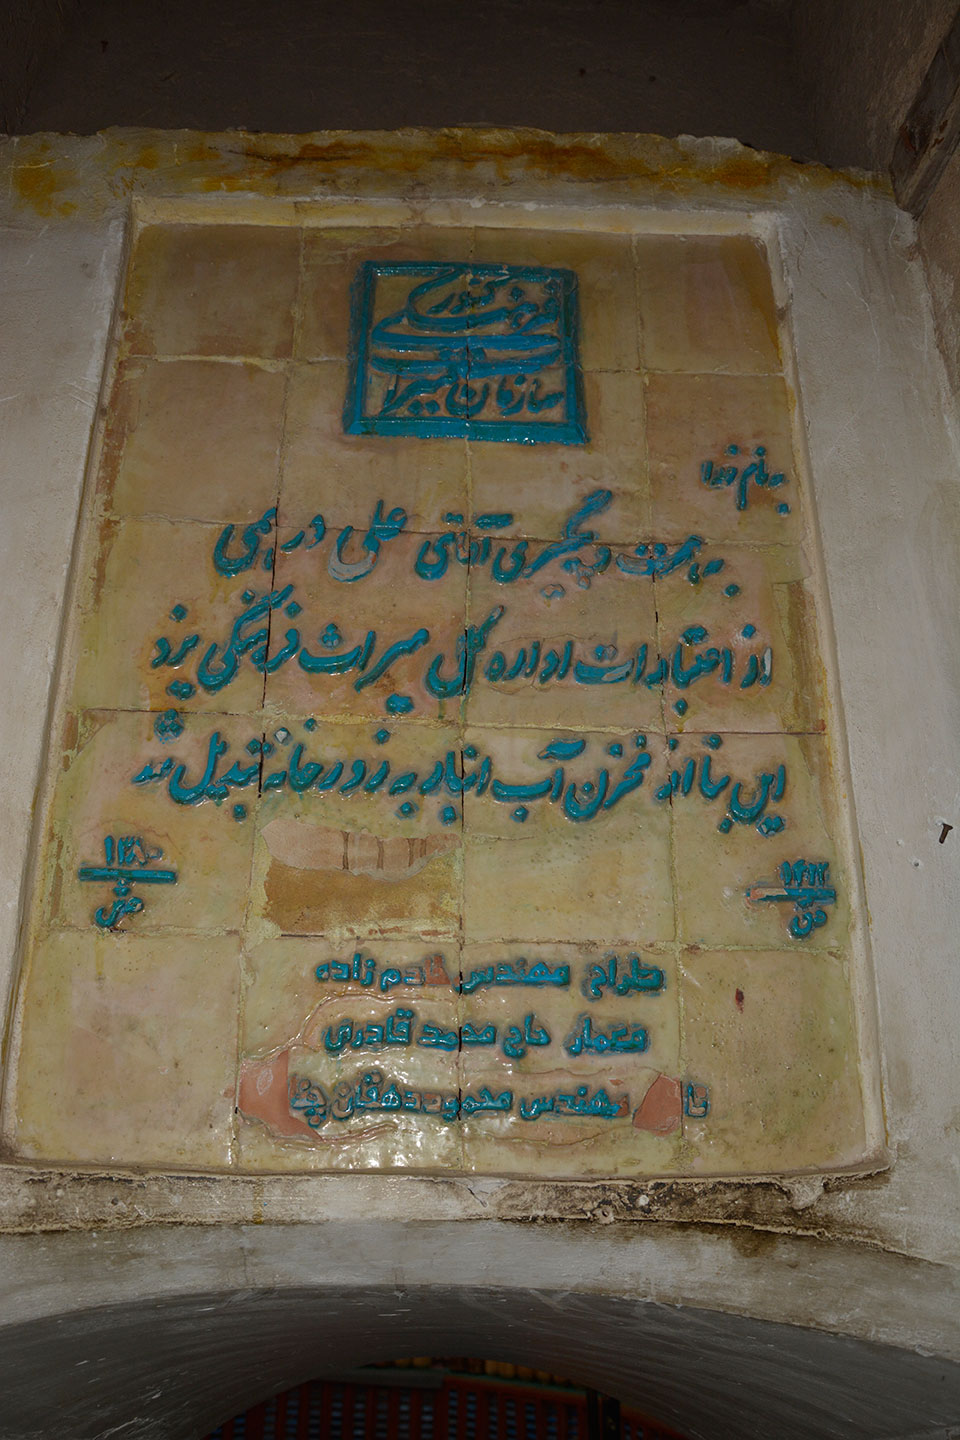 سازمان میراث
فرهنگی
کشور
به نام خدا
به همت و پیگیری آقای علی در ایمی
از اعتبارات اداره کل میراث فرهنگی یزد
این بنا از مخزن آب انبار به زورخانه تبدیل شد
۱۴۲۲
ق
۱۳۸۰
ش
طراح مهندس خادم زاده
معمار حاج محمد قادری
مهندس محمود دهقان